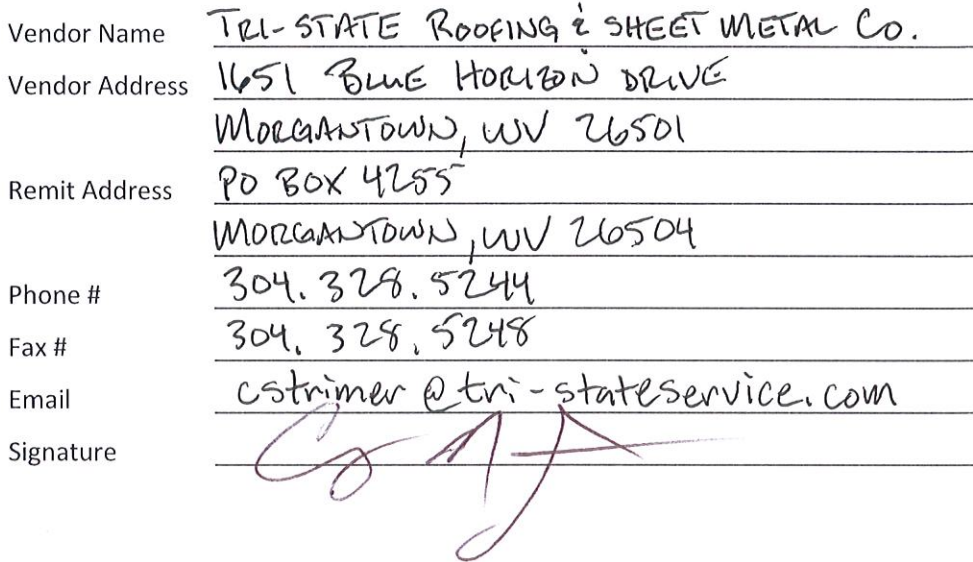 Vendor Name TRI-STATE ROOFING & SHEET METAL CO.
Vendor Address 1651 BLUE HORIZON DRIVE
MORGANTOWN, WV 26501
Remit Address PO BOX 4255
MORGANTOWN, WV 26504
Phone # 304.328.5244
Fax # 304.328.5248
Email cstrimer@tri-stateservice.com
Signature